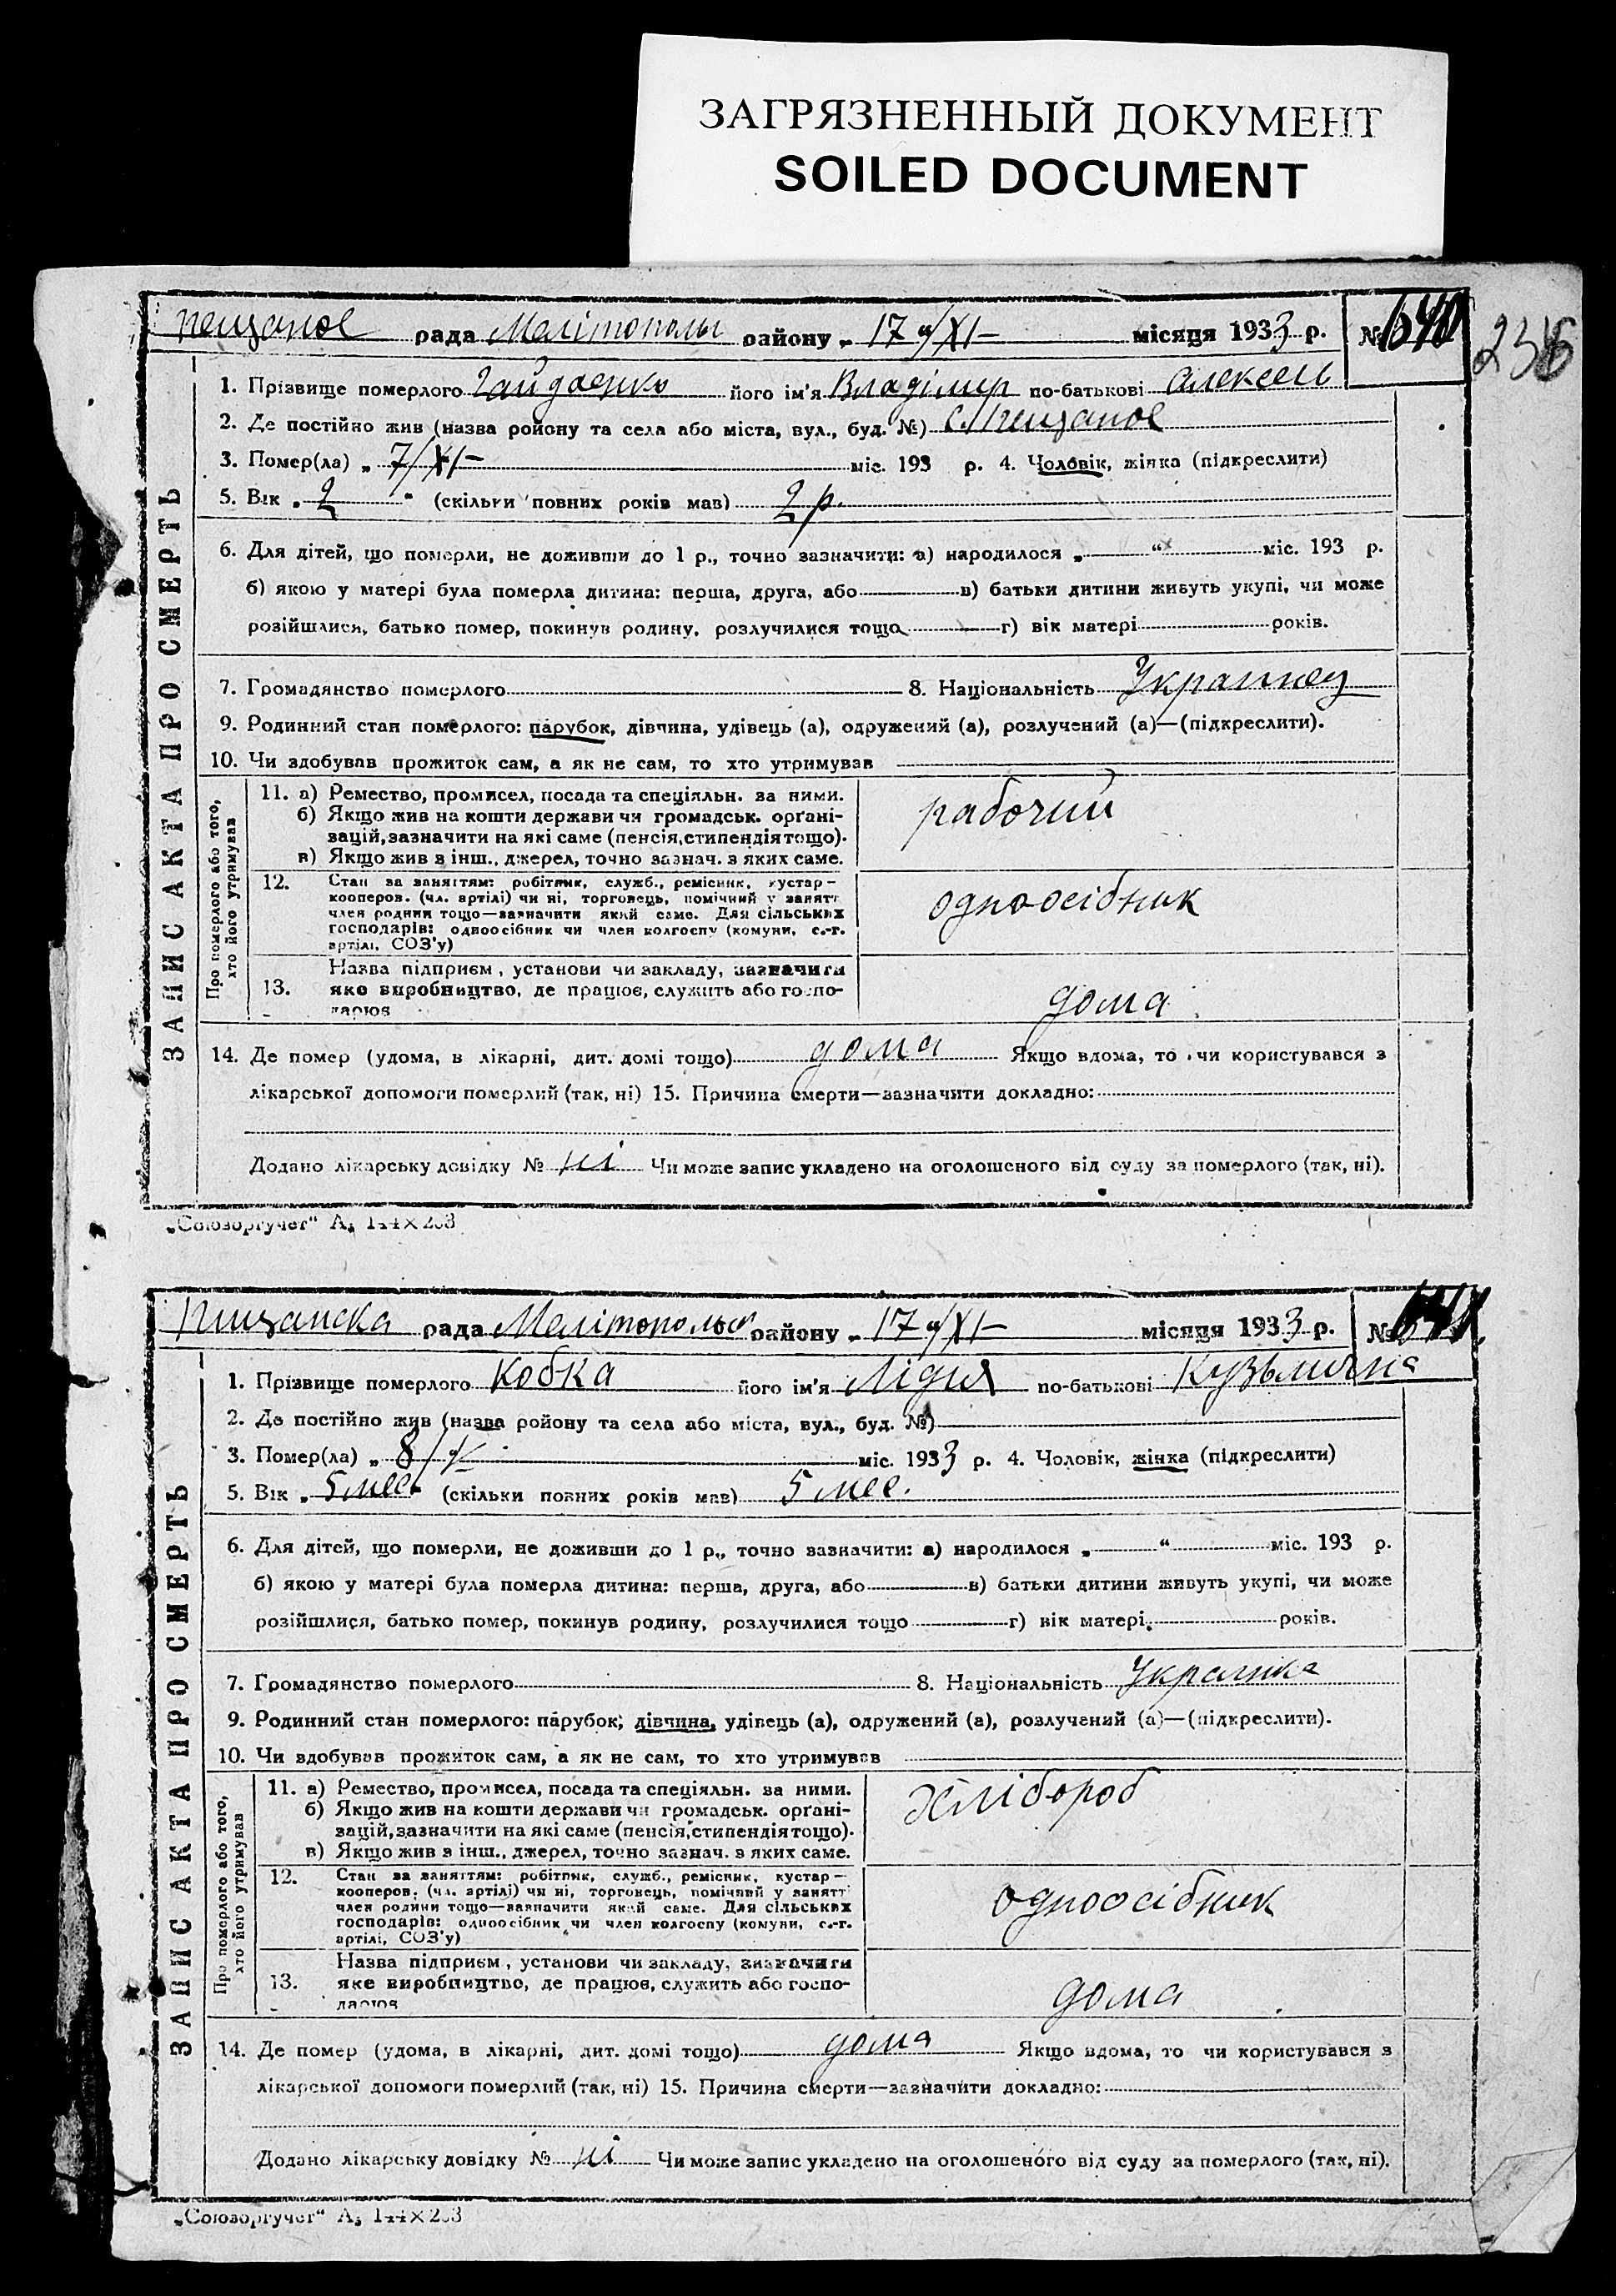 ЗАГРЯЗНЕННЫЙ ДОКУМЕНТ
SOILED DOCUMENT
пещаное рада Мелітополь району „ 17 “/XI— місяця 1933 р. №
236
1. Прізвище померлого Гайдаенко його ім'я Владімир по-батькові Алексеев
2. Де постійно жив (назва ройону та села або міста, вул., буд. №) с. пещаное
3. Помер(ла) „ 7/XI— міс. 193 р. 4. Чоловік, жінка (підкреслити)
5. Вік „ 2 “ (скільки повних років мав) 2 р.
6. Для дітей, що померли, не доживши до 1 р., точно зазначити: а) народилося „ “ міс. 193 р.
б) якою у матері була померла дитина: перша, друга, або в) батьки дитини живуть укупі, чи може
розійшлися, батько помер, покинув родину, розлучилися тощо г) вік матері років.
7. Громадянство померлого 8. Національність Украинец
9. Родинний стан померлого: парубок, дівчина, удівець (а), одружений (а), розлучений (а)—(підкреслити).
10. Чи здобував прожиток сам, а як не сам, то хто утримував
ЗАПИС АКТА ПРО СМЕРТЬ
Про померлого або того, хто його утримував
11. а) Ремество, промисел, посада та спеціяльн. за ними. рабочий
б) Якщо жив на кошти держави чи громадськ. орґані-
зацій, зазначити на які саме (пенсія, стипендія тощо).
в) Якщо жив з інш., джерел, точно зазнач. з яких саме.
12. Стан за заняттям: робітник, служб., ремісник, кустар—
кооперов. (чл. артілі) чи ні, торговець, помічний у занятт
член родини тощо—зазначити який саме. Для сільських одноосібник
господарів: одноосібник чи член колгоспу (комуни, с.-г.
артілі, СОЗ'у)
Назва підприєм, установи чи закладу, зазначити
13. яке виробництво, де працює, служить або госпо- дома
дарює
14. Де помер (удома, в лікарні, дит. домі тощо) дома Якщо вдома, то чи користувався з
лікарської допомоги померлий (так, ні) 15. Причина смерти—зазначити докладно:
Додано лікарську довідку № ні Чи може запис укладено на оголошеного від суду за померлого (так, ні).
„Союзоргучет“ А₅ 144×203
Пищанска рада Мелітопольск району „ 17 “/XI— місяця 1933 р. №
1. Прізвище померлого Кобка його ім'я Лідия по-батькові Кузьмична
2. Де постійно жив (назва ройону та села або міста, вул., буд. №)
3. Помер(ла) „ 8/ міс. 1933 р. 4. Чоловік, жінка (підкреслити)
5. Вік „ 5 мес “ (скільки повних років мав) 5 мес.
6. Для дітей, що померли, не доживши до 1 р., точно зазначити: а) народилося „ “ міс. 193 р.
б) якою у матері була померла дитина: перша, друга, або в) батьки дитини живуть укупі, чи може
розійшлися, батько помер, покинув родину, розлучилися тощо г) вік матері років.
7. Громадянство померлого 8. Національність Украинка
9. Родинний стан померлого: парубок, дівчина, удівець (а), одружений (а), розлучений (а)—(підкреслити).
10. Чи здобував прожиток сам, а як не сам, то хто утримував
ЗАПИС АКТА ПРО СМЕРТЬ
Про померлого або того, хто його утримував
11. а) Ремество, промисел, посада та спеціяльн. за ними. хлібороб
б) Якщо жив на кошти держави чи громадськ. орґані-
зацій, зазначити на які саме (пенсія, стипендія тощо).
в) Якщо жив з інш., джерел, точно зазнач. з яких саме.
12. Стан за заняттям: робітник, служб., ремісник, кустар—
кооперов. (чл. артілі) чи ні, торговець, помічний у занятт
член родини тощо—зазначити який саме. Для сільських одноосібник
господарів: одноосібник чи член колгоспу (комуни, с.-г.
артілі, СОЗ'у)
Назва підприєм, установи чи закладу, зазначити
13. яке виробництво, де працює, служить або госпо- дома
дарює
14. Де помер (удома, в лікарні, дит. домі тощо) дома Якщо вдома, то чи користувався з
лікарської допомоги померлий (так, ні) 15. Причина смерти—зазначити докладно:
Додано лікарську довідку № ні Чи може запис укладено на оголошеного від суду за померлого (так, ні).
„Союзоргучет“ А₅ 144×203